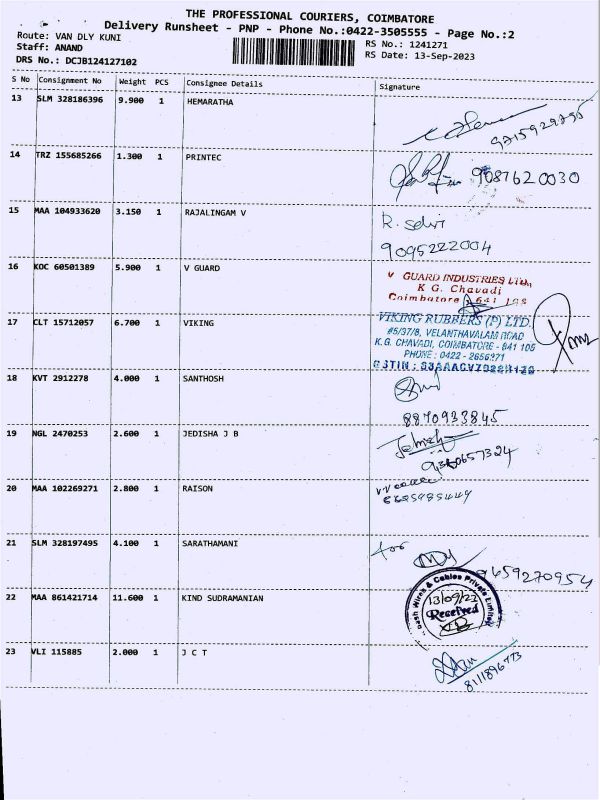 THE PROFESSIONAL COURIERS, COIMBATORE
Delivery Runsheet - PNP - Phone No.:0422-3505555 - Page No.:2
Route: VAN DLY KUNI
Staff: ANAND
DRS No.: DCJB124127102
RS No.: 1241271
RS Date: 13-Sep-2023
S No Consignment No Weight PCS Consignee Details Signature
13 SLM 328186396 9.900 1 HEMARATHA
9715929795
14 TRZ 155685266 1.300 1 PRINTEC
9087620030
15 MAA 104933620 3.150 1 RAJALINGAM V
R. Selvi
9095222004
16 KOC 60501389 5.900 1 V GUARD
V GUARD INDUSTRIES Ltd,
K G. Chavadi
Coimbatore
17 CLT 15712057 6.700 1 VIKING
VIKING RUBBERS (P) LTD.
#5/37/8, VELANTHAVALAM ROAD
K.G. CHAVADI, COIMBATORE - 641 105
PHONE : 0422 - 2656371
GSTIN :
18 KVT 2912278 4.000 1 SANTHOSH
8870933845
19 NGL 2470253 2.600 1 JEDISHA J B
20 MAA 102269271 2.800 1 RAISON
21 SLM 328197495 4.100 1 SARATHAMANI
for
9659270954
22 MAA 861421714 11.600 1 KIND SUDRAMANIAN
Wires & Cables Private Limited
Received
23 VLI 115885 2.000 1 J C T
8111896773